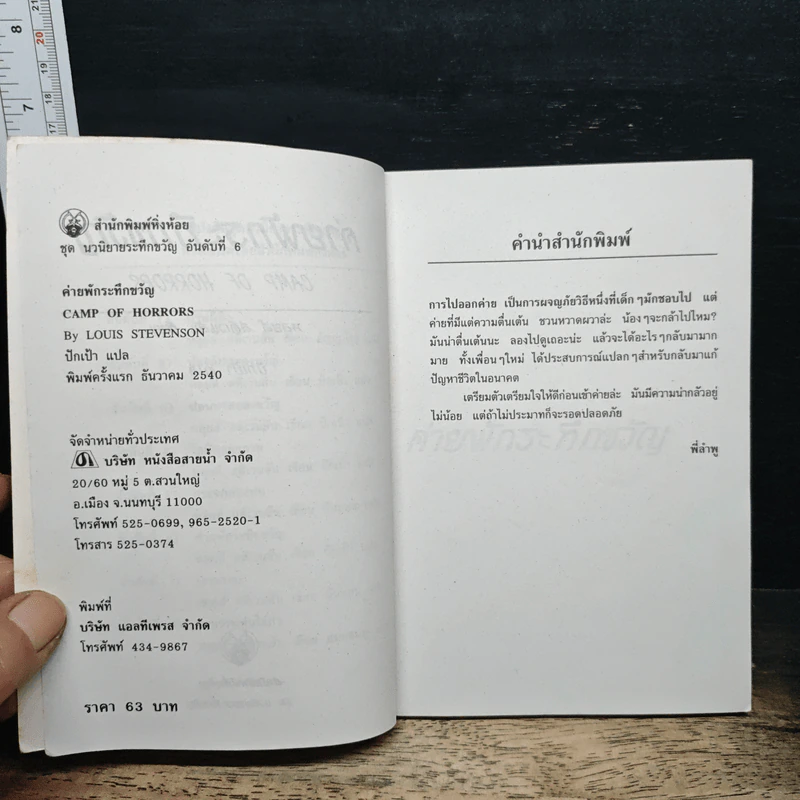 8
7
21
20
19
18
17
สำนักพิมพ์หิ่งห้อย
ชุด นวนิยายระทึกขวัญ อันดับที่ 6
ค่ายพักระทึกขวัญ
CAMP OF HORRORS
By LOUIS STEVENSON
ปักเป้า แปล
พิมพ์ครั้งแรก ธันวาคม 2540
จัดจำหน่ายทั่วประเทศ
บริษัท หนังสือสายน้ำ จำกัด
20/60 หมู่ 5 ต.สวนใหญ่
อ.เมือง จ.นนทบุรี 11000
โทรศัพท์ 525-0699, 965-2520-1
โทรสาร 525-0374
พิมพ์ที่
บริษัท แอลทีเพรส จำกัด
โทรศัพท์ 434-9867
ราคา 63 บาท
คำนำสำนักพิมพ์
การไปออกค่าย เป็นการผจญภัยวิธีหนึ่งที่เด็กๆมักชอบไป แต่
ค่ายที่มีแต่ความตื่นเต้น ชวนหวาดผวาล่ะ น้องๆจะกล้าไปไหม?
มันน่าตื่นเต้นนะ ลองไปดูเถอะน่ะ แล้วจะได้อะไรๆกลับมามาก
มาย ทั้งเพื่อนๆใหม่ ได้ประสบการณ์แปลกๆสำหรับกลับมาแก้
ปัญหาชีวิตในอนาคต
เตรียมตัวเตรียมใจให้ดีก่อนเข้าค่ายล่ะ มันมีความน่ากลัวอยู่
ไม่น้อย แต่ถ้าไม่ประมาทก็จะรอดปลอดภัย
พี่ลำพู